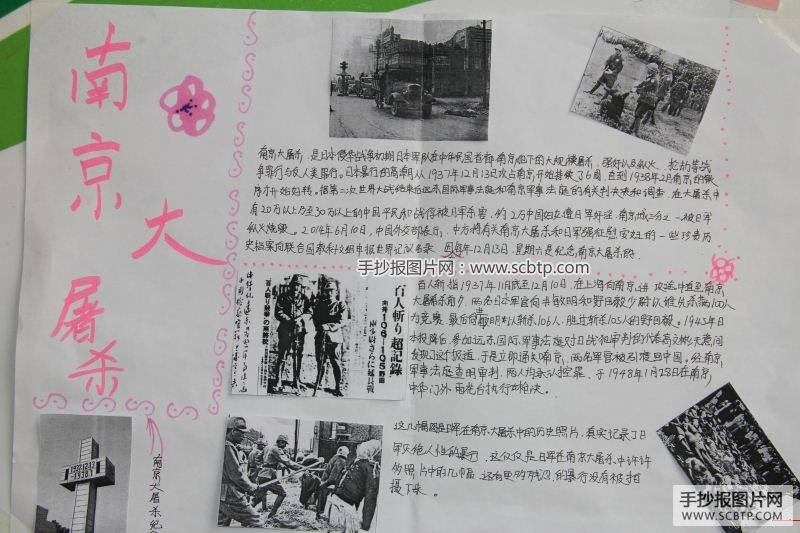 南京大屠杀
南京大屠杀,是日本侵华战争初期日本军队在中华民国首都南京犯下的大规模屠杀、强奸以及纵火、抢劫等战
争罪行与反人类罪行。日本暴行的高潮从1937年12月13日攻占南京开始持续了6周,直到1938年2月南京的秩
序才开始好转。据第二次世界大战结束后远东国际军事法庭和南京军事法庭的有关判决和调查,在大屠杀中
有20万以上乃至30万以上的中国平民和战俘被日军杀害,约2万中国妇女遭日军奸淫,南京城三分之一被日军
纵火烧毁。2014年6月10日,中国外交部表示,中方将有关南京大屠杀和日军强征慰安妇的一些珍贵历
史档案向联合国教科文组申报世界记忆名录。
年12月13日,星期六是纪念南京大屠杀
手抄报图片网:www.scbtp.com
百人斬り 超記錄
106－105
兩少尉さらに延長戰
百人斬り競爭
百人斩指1937年11月底至12月10日,在上海向南京进攻途中直至南京
大屠杀前夕,两名日本军官向井敏明和野田毅少尉以谁先杀满100人
为竞赛,最后向井敏明以斩杀106人,胜过斩杀105人的野田毅。1945年日
本投降后,参加远东国际军事法庭对日战犯审判的代表高文彬无意间
发现了这个报道,于是立即通知南京,两名军官被引渡回中国。经南京
军事法庭
审判,两人均承认控罪,于1948年1月28日在南京
中华门外雨花台执行枪决。
这几幅图是日军在南京大屠杀中的历史照片,真实记录了日
军灭绝人性的暴行,这仅仅是日军在南京大屠杀中许许
多照片中的几幅,还有更的残忍的暴行没有被拍
摄下来。
1937.12.13
-1938.1
南京大屠杀纪念
手抄报图片网
WWW.SCBTP.COM